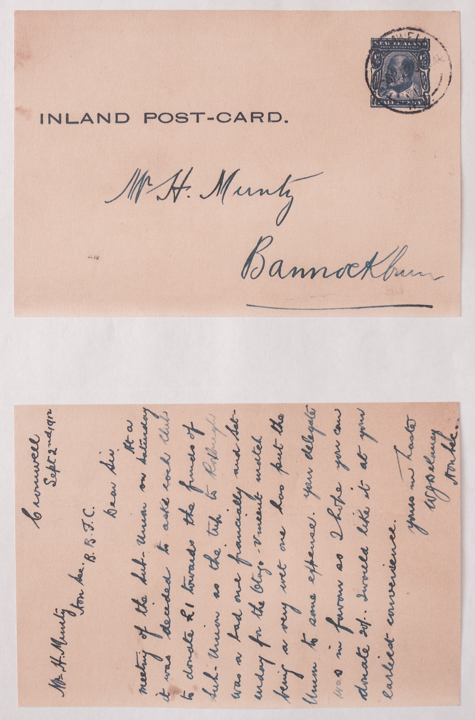 NEW ZEALAND
INLAND POST-CARD.
Mr H. Muntz
Bannockburn
Cromwell
Sept 2nd 1912
Mr H. Muntz
Hon Sec. B.F.C.
Dear Sir
At a
meeting of the Sub-Union on Saturday
it was decided to ask each Club
to donate £1 towards the funds of
Sub-Union as the trip to Roxburgh
was a bad one financially and Sat-
urday for the Otago-Vincent match
being a very wet one has put the
Union to some expense. Your delegate
was in favour so I hope you can
donate 20/- I would like it at your
earliest convenience.
yours in haste
Hon Sec.